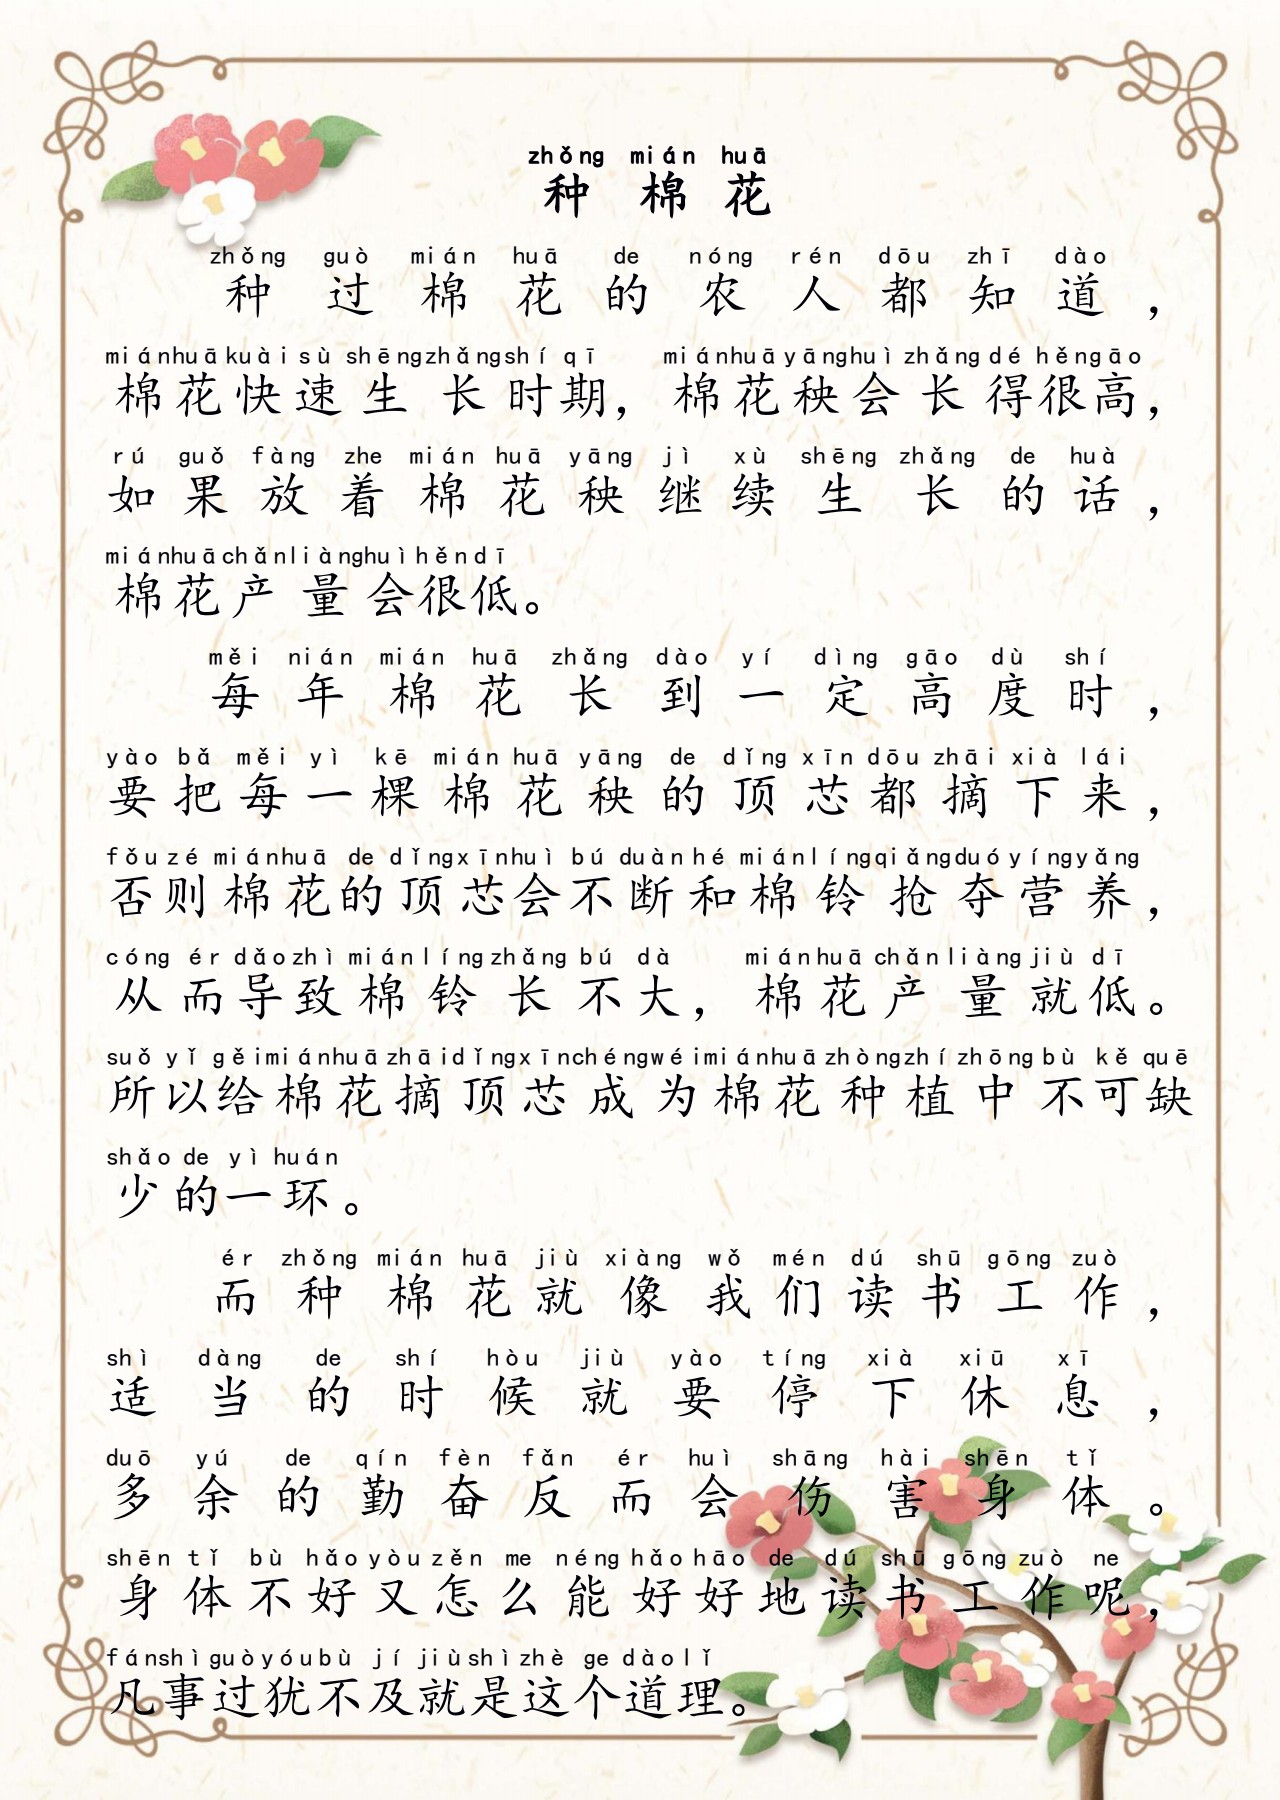 zhǒng mián huā
种棉花
zhǒng guò mián huā de nóng rén dōu zhī dào
种过棉花的农人都知道，
miánhuākuàisù shēngzhǎngshíqī miánhuāyānghuìzhǎngdé hěngāo
棉花快速生长时期，棉花秧会长得很高，
rú guǒ fàng zhe mián huā yāng jì xù shēng zhǎng de huà
如果放着棉花秧继续生长的话，
miánhuāchǎnliànghuìhěndī
棉花产量会很低。
měi nián mián huā zhǎng dào yí dìng gāo dù shí
每年棉花长到一定高度时，
yào bǎ měi yì kē mián huā yāng de dǐng xīn dōu zhāi xià lái
要把每一棵棉花秧的顶芯都摘下来，
fǒuzé miánhuā de dǐngxīnhuì bú duàn hé miánlíngqiǎngduóyíngyǎng
否则棉花的顶芯会不断和棉铃抢夺营养，
cóng ér dǎozhì miánlíng zhǎng bú dà miánhuā chǎnliàng jiù dī
从而导致棉铃长不大，棉花产量就低。
suǒ yǐ gěimiánhuāzhāidǐngxīnchéngwéimiánhuāzhòngzhízhōng bù kě quē
所以给棉花摘顶芯成为棉花种植中不可缺
shǎo de yì huán
少的一环。
ér zhǒng mián huā jiù xiàng wǒ mén dú shū gōng zuò
而种棉花就像我们读书工作，
shì dàng de shí hòu jiù yào tíng xià xiū xī
适当的时候就要停下休息，
duō yú de qín fèn fǎn ér huì shāng hài shēn tǐ
多余的勤奋反而会伤害身体。
shēn tǐ bù hǎo yòu zěn me néng hǎo hāo de dú shū gōng zuò ne
身体不好又怎么能好好地读书工作呢，
fánshìguòyóubù jí jiùshìzhè ge dàolǐ
凡事过犹不及就是这个道理。